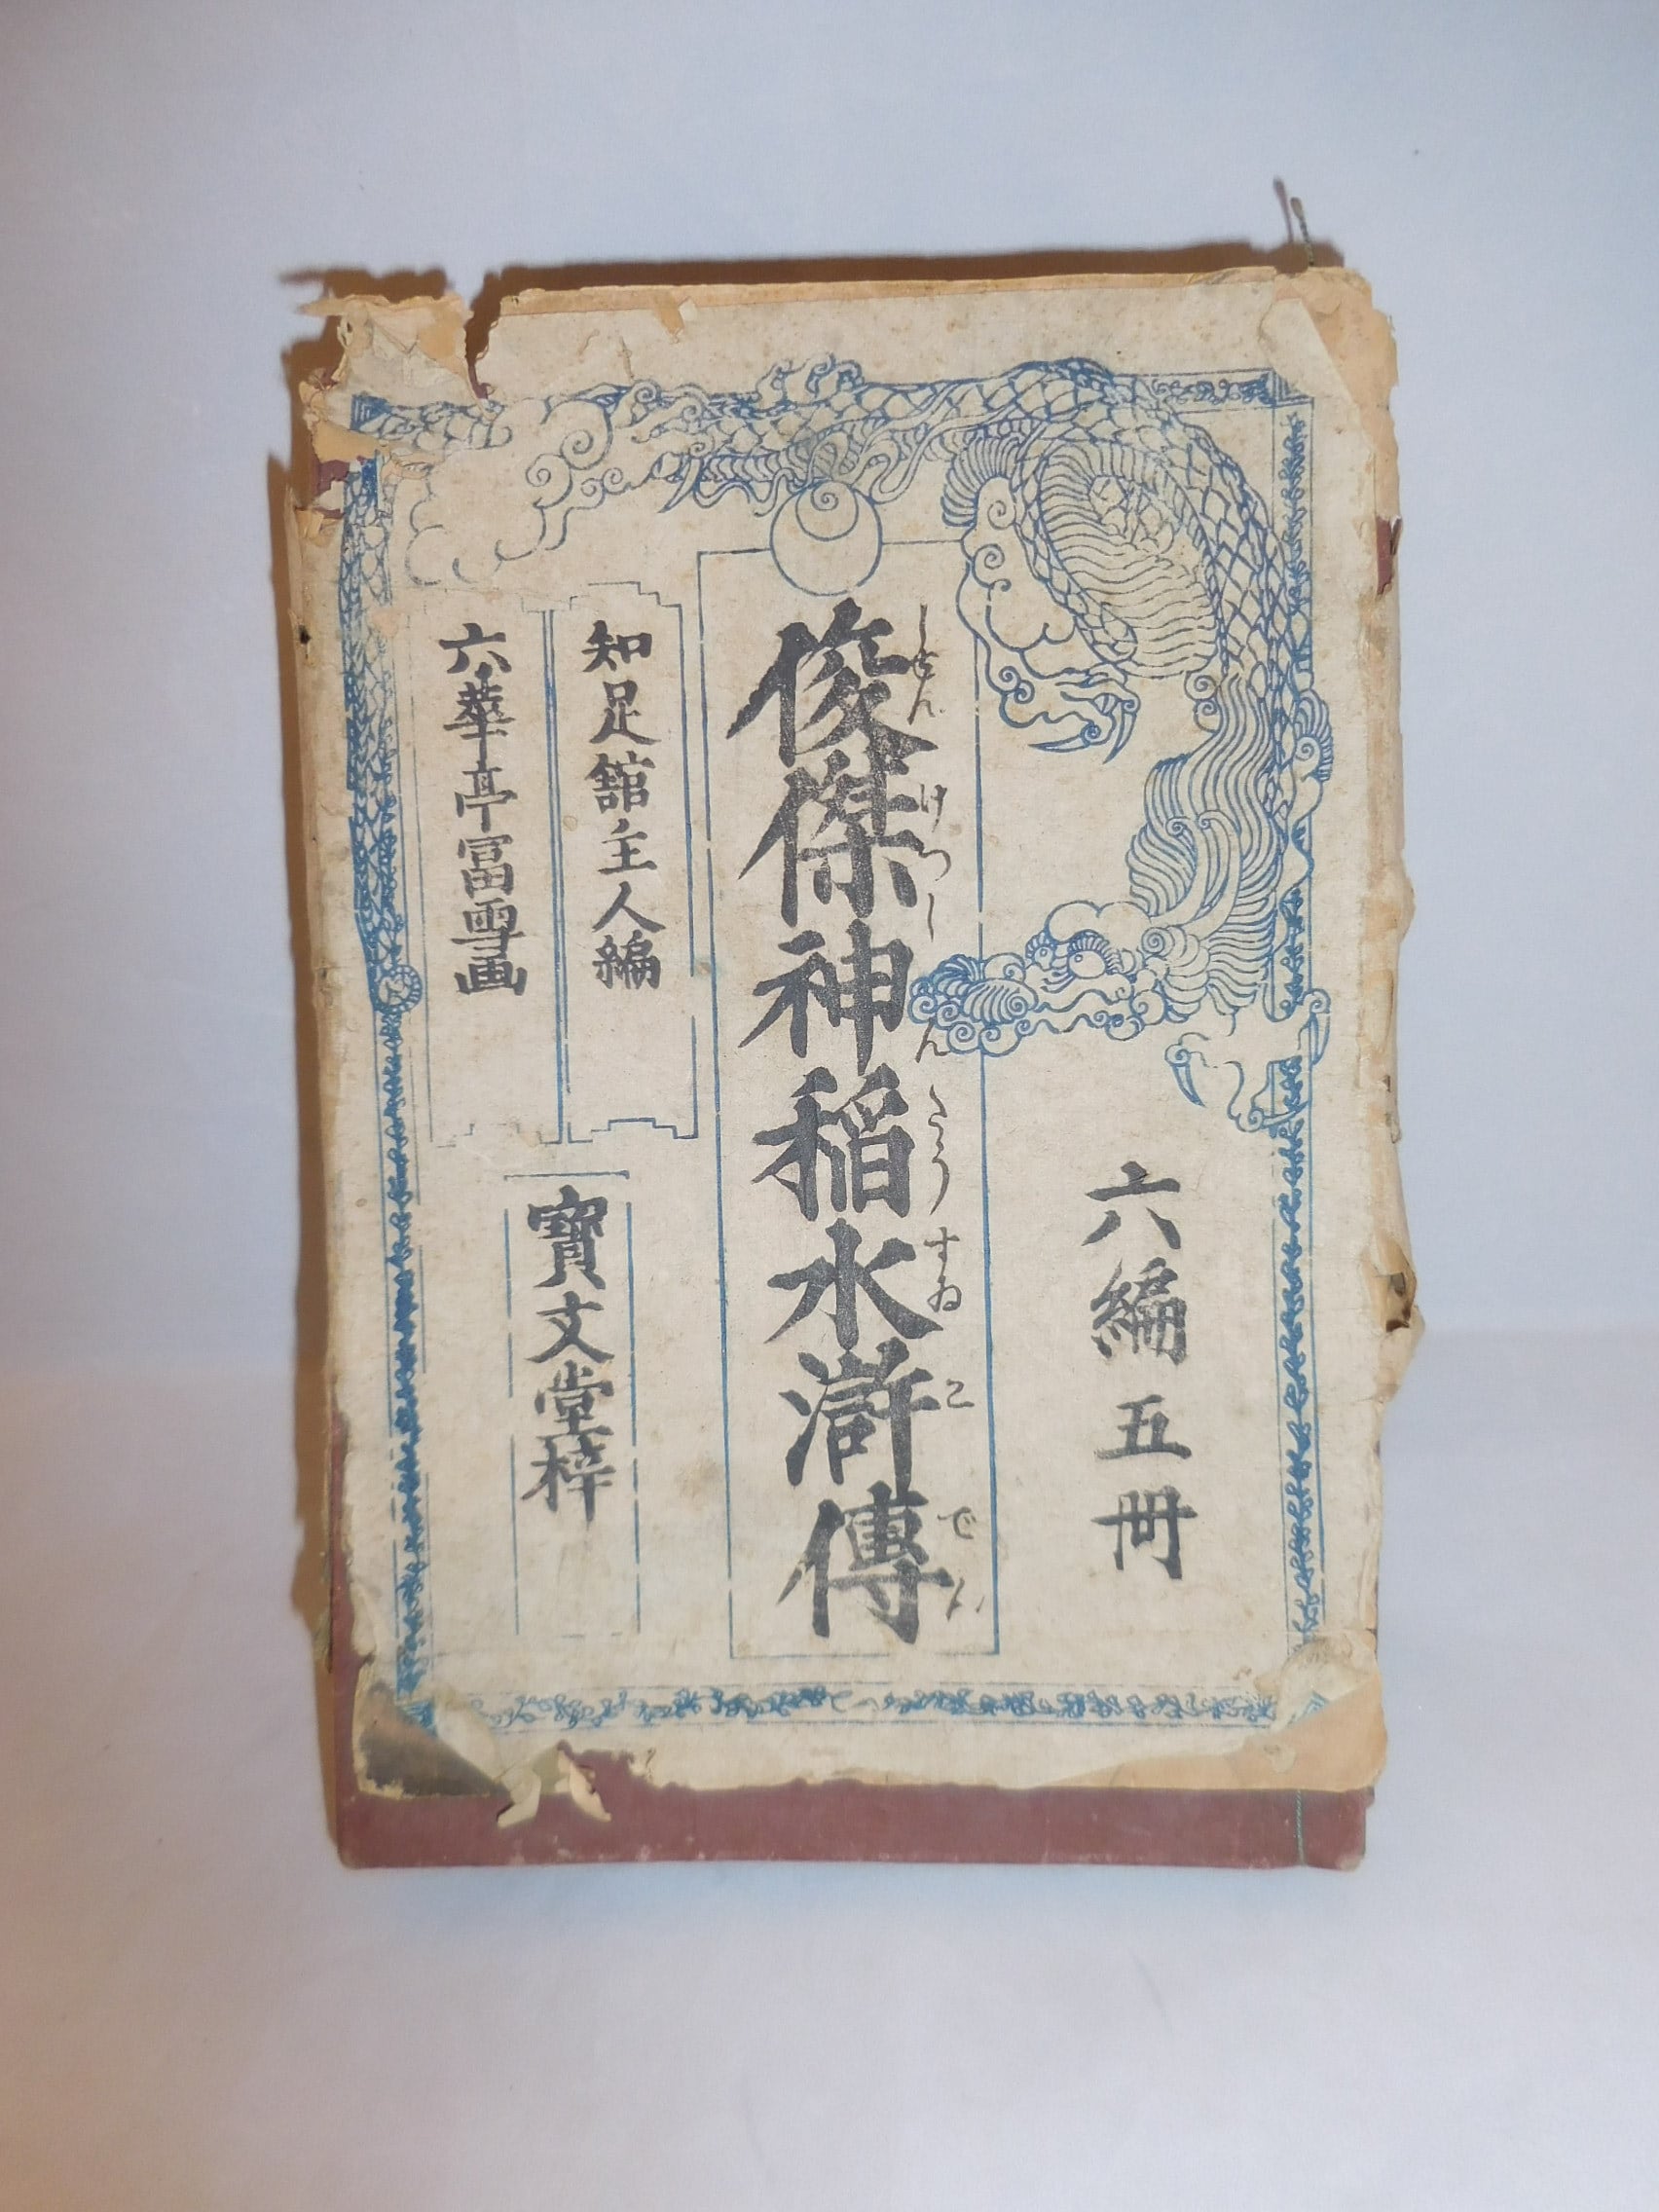 六編五冊
俊傑神稲水滸傳
しゆんけつしんたうすゐこでん
知足舘主人編
六華亭冨雪画
寳文堂梓